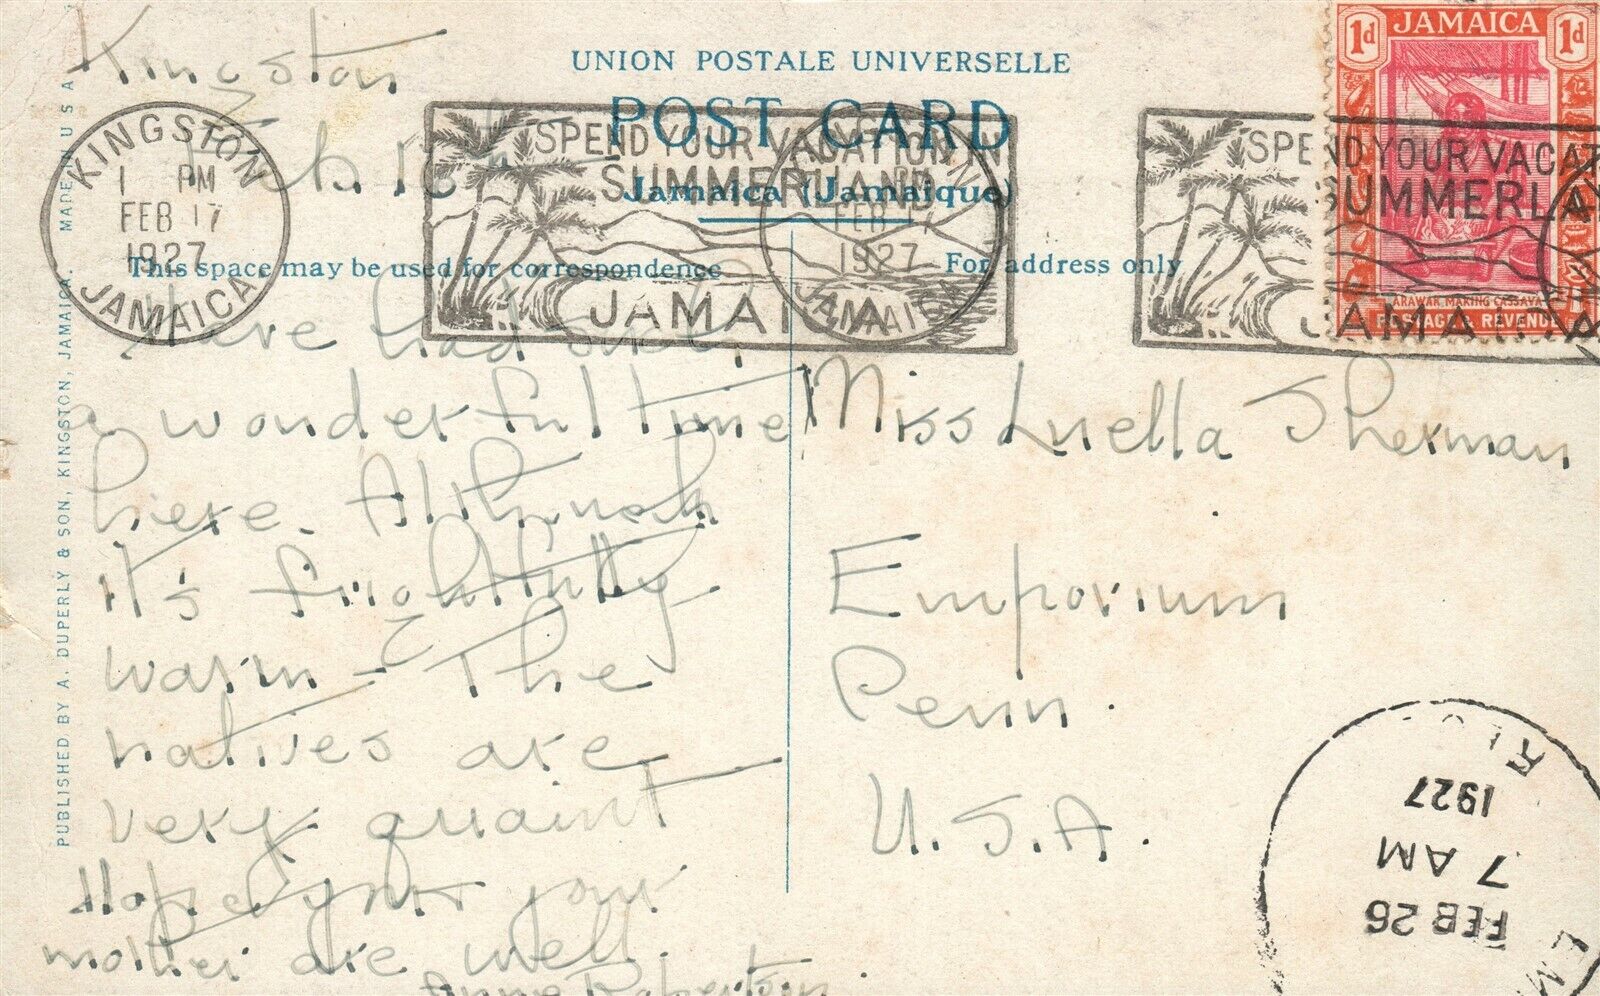 Kingston
Feb. 16
Have had such
a wonderful time
here. Although
it's frightfully
warm - The
natives are
very quaint
Hope you & your
mother are well.
UNION POSTALE UNIVERSELLE
POST CARD
Jamaica (Jamaïque)
This space may be used for correspondence
For address only
Miss Luella Sherman
Emporium
Penn.
U.S.A.
PUBLISHED BY A. DUPERLY & SON, KINGSTON, JAMAICA. MADE IN U S A
KINGSTON
1 PM
FEB 17
1927
JAMAICA
SPEND YOUR VACATION IN
SUMMERLAND
JAMAICA
KINGSTON
FEB 17
1927
JAMAICA
SPEND YOUR VACAT
SUMMERLA
JAMAICA
JAMAICA
1d 1d
ARAWAK MAKING CASSAVA
POSTAGE & REVENUE
FEB 26
7 AM
1927